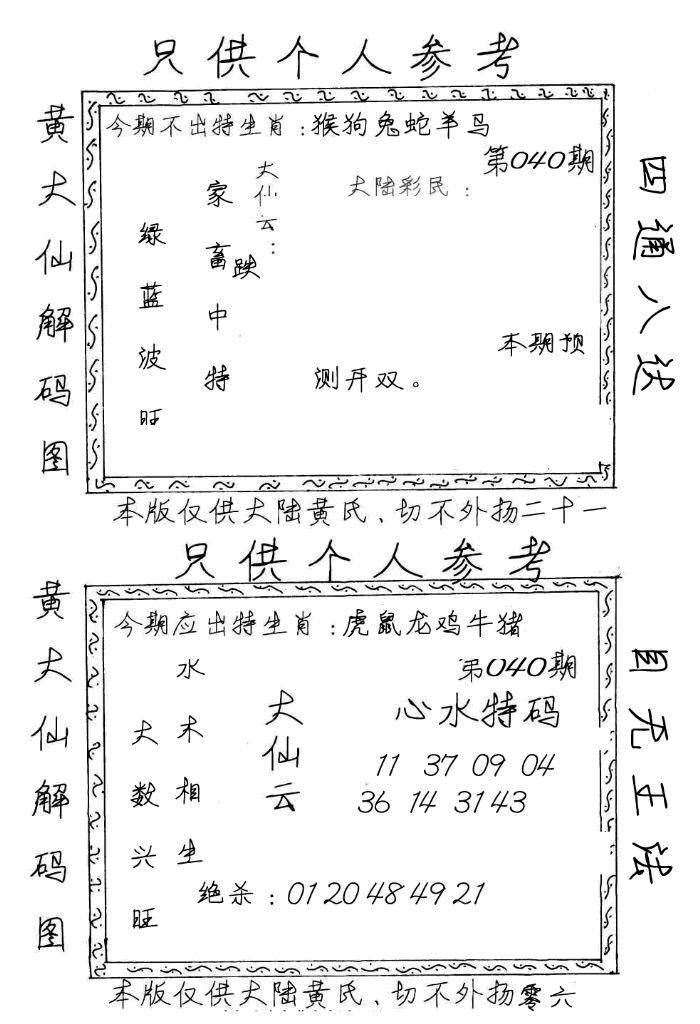 只供个人参考
黄大仙解码图
今期不出特生肖:猴狗兔蛇羊马
第040期
大陆彩民:
大仙云:
家畜跌中特
绿蓝波旺
本期预
测开双。
四通八达
本版仅供大陆黄氏、切不外扬二十一
只供个人参考
黄大仙解码图
今期应出特生肖:虎鼠龙鸡牛猪
第040期
心水特码
11 37 09 04
36 14 31 43
大仙云
水木相生
大数兴旺
绝杀:01 20 48 49 21
目无王法
本版仅供大陆黄氏、切不外扬零六